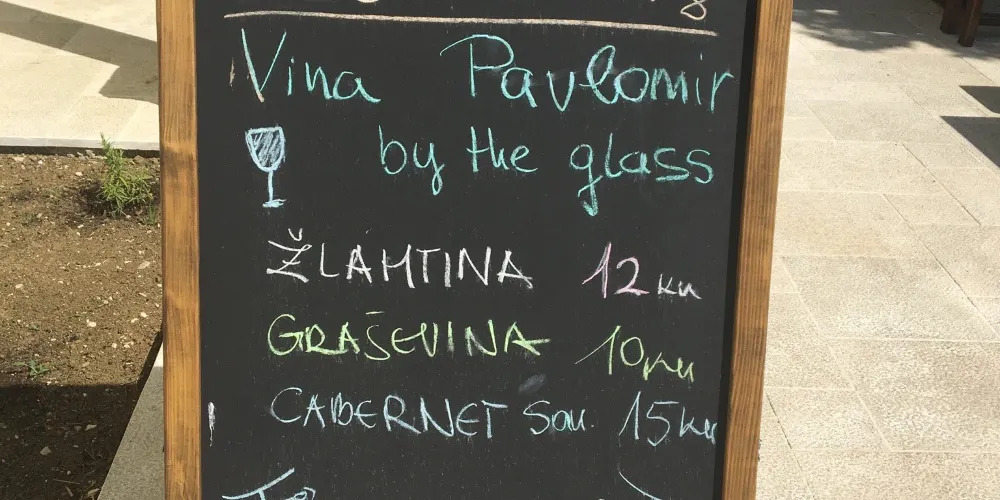 Vina Pavlomir
by the glass
ŽLAHTINA 12 ku
GRAŠEVINA 10 ku
CABERNET Sau. 15 ku